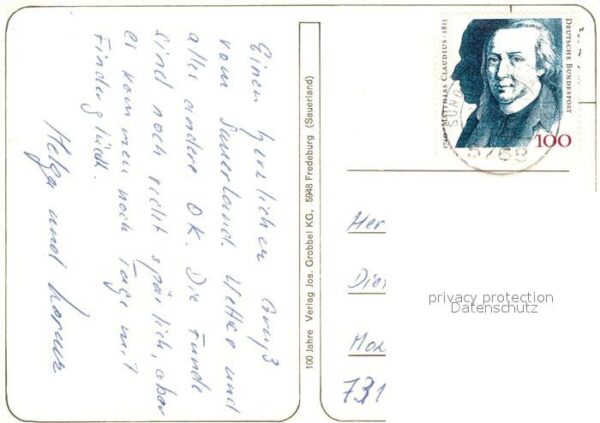 Einen herzlichen Gruß
vom Sauerland. Wetter und
alles andere OK. Die Funde
sind noch recht spärlich, aber
es kommen noch Tage mit
Finderglück.
Helga und
100 Jahre Verlag Jos. Grobbel KG, 5948 Fredeburg (Sauerland)
MATTHIAS CLAUDIUS · 1815
DEUTSCHE BUNDESPOST
100
Her
Die
731
privacy protection
Datenschutz